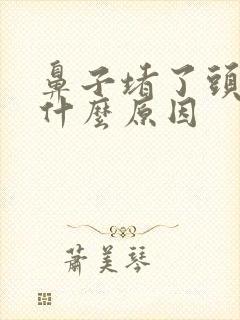 鼻子堵了頭
什麼原因
蕭美琴